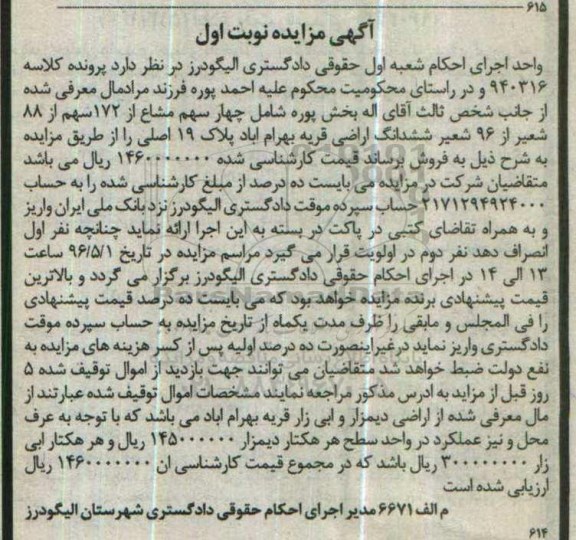 ۶۱۵
آگهی مزایده نوبت اول
واحد اجرای احکام شعبه اول حقوقی دادگستری الیگودرز در نظر دارد پرونده کلاسه
۹۴۰۳۱۶ و در راستای محکومیت محکوم علیه احمد پوره فرزند مرادمال معرفی شده
از جانب شخص ثالث آقای اله بخش پوره شامل چهار سهم مشاع از ۱۷۲سهم از ۸۸
شعیر از ۹۶ شعیر ششدانگ اراضی قریه بهرام اباد پلاک ۱۹ اصلی را از طریق مزایده
به شرح ذیل به فروش برساند قیمت کارشناسی شده ۱۴۶۰۰۰۰۰۰۰ ریال می باشد
متقاضیان شرکت در مزایده می بایست ده درصد از مبلغ کارشناسی شده را به حساب
۲۱۷۱۲۹۴۹۲۴۰۰۰ حساب سپرده موقت دادگستری الیگودرز نزد بانک ملی ایران واریز
و به همراه تقاضای کتبی در پاکت در بسته به این اجرا ارائه نماید چنانچه نفر اول
انصراف دهد نفر دوم در اولویت قرار می گیرد مراسم مزایده در تاریخ ۹۶/۵/۱ ساعت
۱۳ الی ۱۴ در اجرای احکام حقوقی دادگستری الیگودرز برگزار می گردد و بالاترین
قیمت پیشنهادی برنده مزایده خواهد بود که می بایست ده درصد قیمت پیشنهادی
را فی المجلس و مابقی را ظرف مدت یکماه از تاریخ مزایده به حساب سپرده موقت
دادگستری واریز نماید درغیر اینصورت ده درصد اولیه پس از کسر هزینه های مزایده به
نفع دولت ضبط خواهد شد متقاضیان می توانند جهت بازدید از اموال توقیف شده ۵
روز قبل از مزاید به ادرس مذکور مراجعه نمایند مشخصات اموال توقیف شده عبارتند از
مال معرفی شده از اراضی دیمزار و ابی زار قریه بهرام اباد می باشد که با توجه به عرف
محل و نیز عملکرد در واحد سطح هر هکتار دیمزار ۱۴۵۰۰۰۰۰۰ ریال و هر هکتار ابی
زار ۳۰۰۰۰۰۰۰۰ ریال باشد که در مجموع قیمت کارشناسی ان ۱۴۶۰۰۰۰۰۰۰ ریال
ارزیابی شده است
م الف ۶۶۷۱ مدیر اجرای احکام حقوقی دادگستری شهرستان الیگودرز
۶۱۴